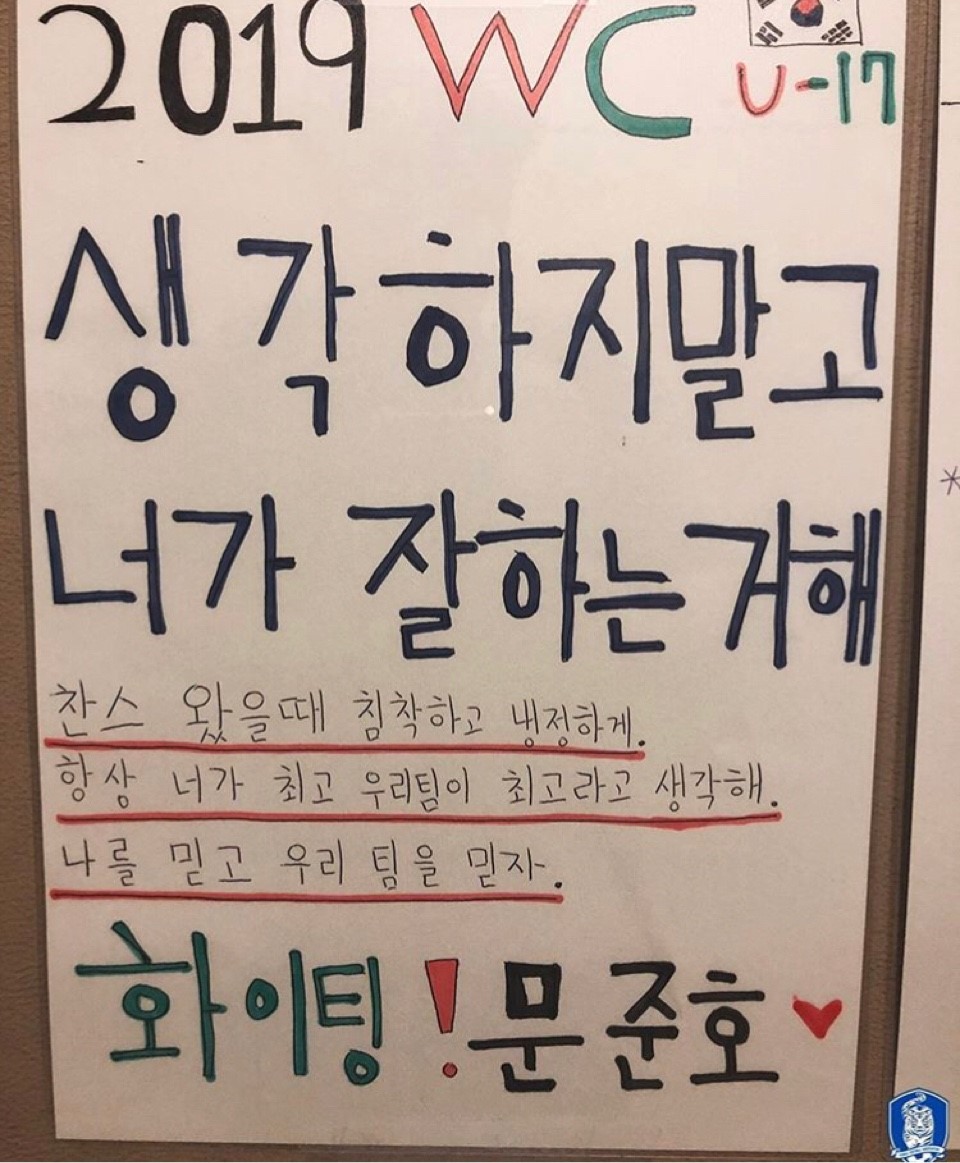 2019 WC U-17
생각하지말고
너가 잘하는거해
찬스 왔을때 침착하고 냉정하게.
항상 너가 최고 우리팀이 최고라고 생각해.
나를 믿고 우리 팀을 믿자.
화이팅! 문준호♥